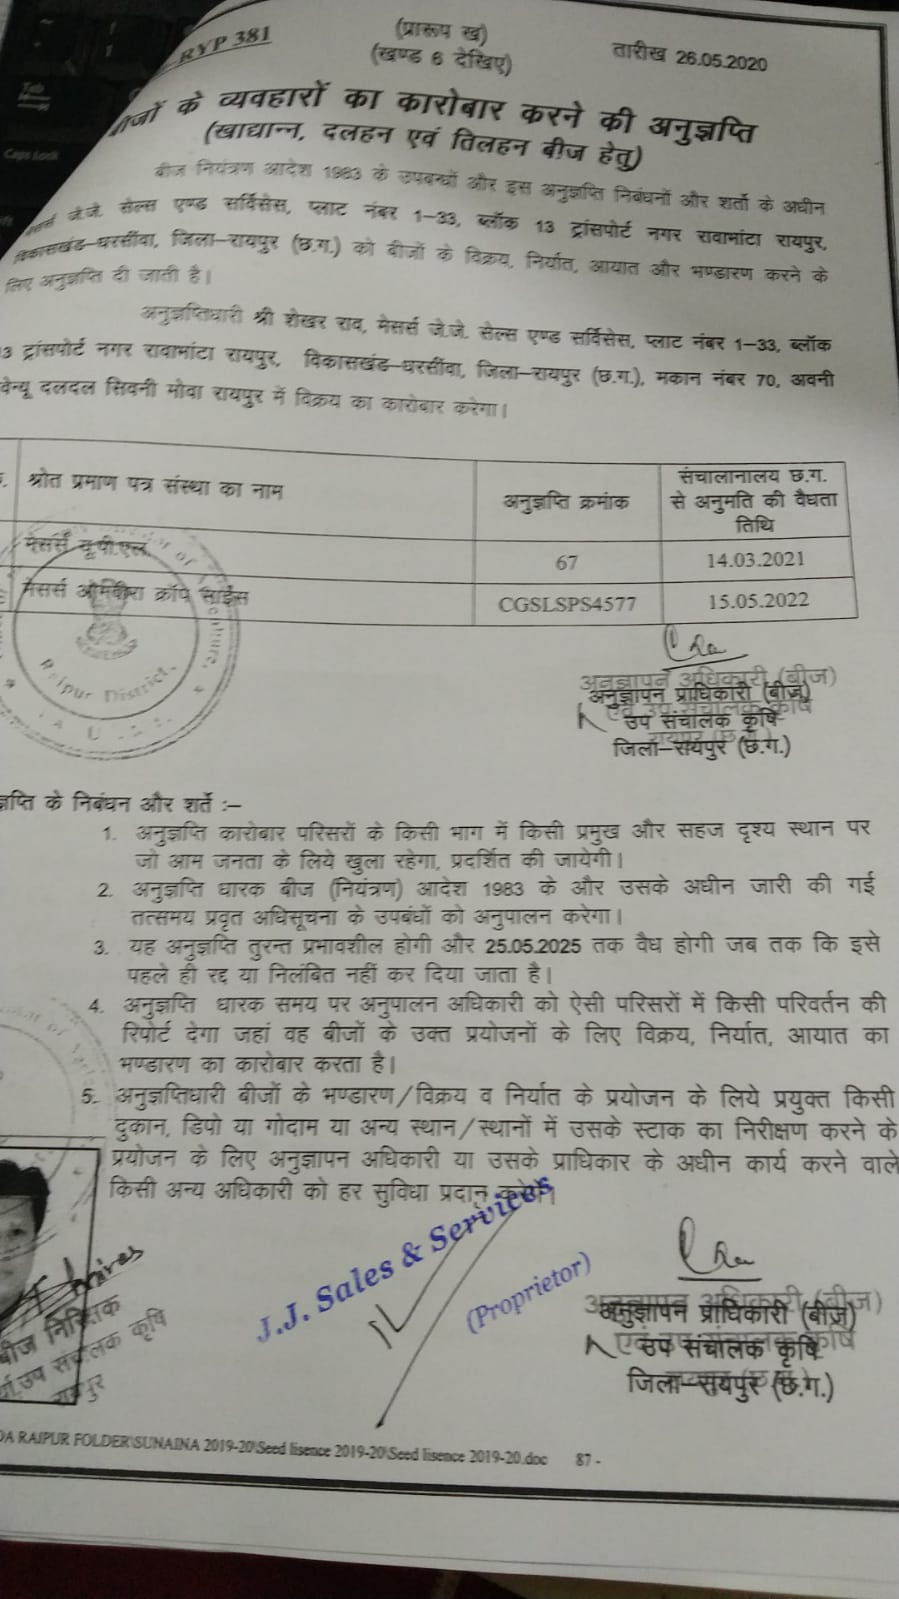 RYP 381
(प्रारूप ख)
(खण्ड 6 देखिए)
तारीख 26.05.2020
के व्यवहारों का कारोबार करने की अनुज्ञप्ति
(खाद्यान्न, दलहन एवं तिलहन बीज हेतु)
बीज नियंत्रण आदेश 1983 के उपबन्धों और इस अनुज्ञप्ति निबंधनों और शर्तो के अधीन
जे.जे. सेल्स एण्ड सर्विसेस, प्लाट नंबर 1-33, ब्लॉक 13 ट्रांसपोर्ट नगर रावाभांटा रायपुर,
विकासखंड-धरसींवा, जिला-रायपुर (छ.ग.) को बीजों के विक्रय, निर्यात, आयात और भण्डारण करने के
लिए अनुज्ञप्ति दी जाती है।
अनुज्ञप्तिधारी श्री शेखर राव, मेसर्स जे.जे. सेल्स एण्ड सर्विसेस, प्लाट नंबर 1-33, ब्लॉक
3 ट्रांसपोर्ट नगर रावाभांटा रायपुर, विकासखंड-धरसींवा, जिला-रायपुर (छ.ग.), मकान नंबर 70, अवनी
वेन्यू दलदल सिवनी मोवा रायपुर में विक्रय का कारोबार करेगा।
श्रोत प्रमाण पत्र संस्था का नाम
अनुज्ञप्ति क्रमांक
संचालानालय छ.ग.
से अनुमति की वैधता
तिथि
मेसर्स यू.पी.एल.
67
14.03.2021
मेसर्स क्रॉप साईंस
CGSLSPS4577
15.05.2022
Raipur District.
अनुज्ञापन अधिकारी (बीज)
अनुज्ञापन प्राधिकारी (बीज)
एवं उप संचालक कृषि
उप संचालक कृषि
जिला-रायपुर (छ.ग.)
ज्ञप्ति के निबंधन और शर्ते :-
1. अनुज्ञप्ति कारोबार परिसरों के किसी भाग में किसी प्रमुख और सहज दृश्य स्थान पर
जो आम जनता के लिये खुला रहेगा, प्रदर्शित की जायेगी।
2. अनुज्ञप्ति धारक बीज (नियंत्रण) आदेश 1983 के और उसके अधीन जारी की गई
तत्समय प्रवृत अधिसूचना के उपबंधों को अनुपालन करेगा।
3. यह अनुज्ञप्ति तुरन्त प्रभावशील होगी और 25.05.2025 तक वैध होगी जब तक कि इसे
पहले ही रद्द या निलंबित नहीं कर दिया जाता है।
4. अनुज्ञप्ति धारक समय पर अनुपालन अधिकारी को ऐसी परिसरों में किसी परिवर्तन की
रिपोर्ट देगा जहां वह बीजों के उक्त प्रयोजनों के लिए विक्रय, निर्यात, आयात का
भण्डारण का कारोबार करता है।
5. अनुज्ञप्तिधारी बीजों के भण्डारण/विक्रय व निर्यात के प्रयोजन के लिये प्रयुक्त किसी
दुकान, डिपो या गोदाम या अन्य स्थान/स्थानों में उसके स्टाक का निरीक्षण करने के
प्रयोजन के लिए अनुज्ञापन अधिकारी या उसके प्राधिकार के अधीन कार्य करने वाले
किसी अन्य अधिकारी को हर सुविधा प्रदान करेगा।
J.J. Sales & Services
(Proprietor)
बीज निरिक्षक
उप संचालक कृषि
रायपुर
अनुज्ञापन अधिकारी (बीज)
अनुज्ञापन प्राधिकारी (बीज)
एवं उप संचालक कृषि
उप संचालक कृषि
जिला-रायपुर (छ.ग.)
DA RAIPUR FOLDER\SUNAINA 2019-20\Seed lisence 2019-20\Seed lisence 2019-20.doc 87 -
Tab
Caps Lock